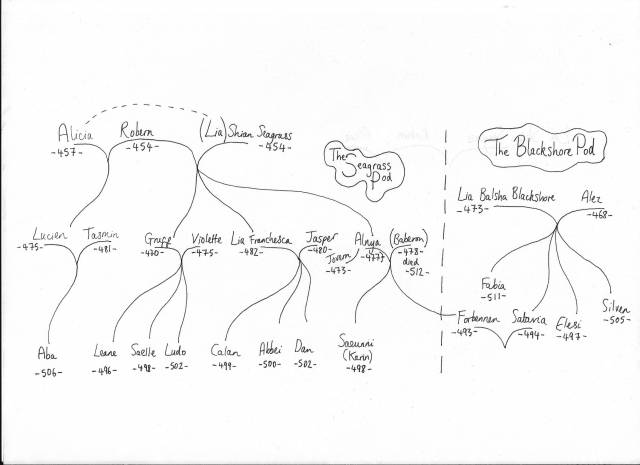 Alicia
-457-
Robern
-454-
(Lia) Shian Seagrass
-454-
The Seagrass Pod
The Blackshore Pod
Lia Balsha Blackshore
-473-
Alez
-468-
Lucien
-475-
Tasmin
-481-
Gruff
-470-
Violette
-475-
Lia Franchesca
-482-
Jasper
-480-
Joram
-473-
Alnya
-477-
(Baberon)
-478-
died
-512-
Fabia
-511-
Forbennen
-493-
Satavia
-494-
Elesi
-497-
Silven
-505-
Aba
-506-
Leane
-496-
Saelle
-498-
Ludo
-502-
Calan
-499-
Abbei
-500-
Dan
-502-
Saeunni
(Karin)
-498-